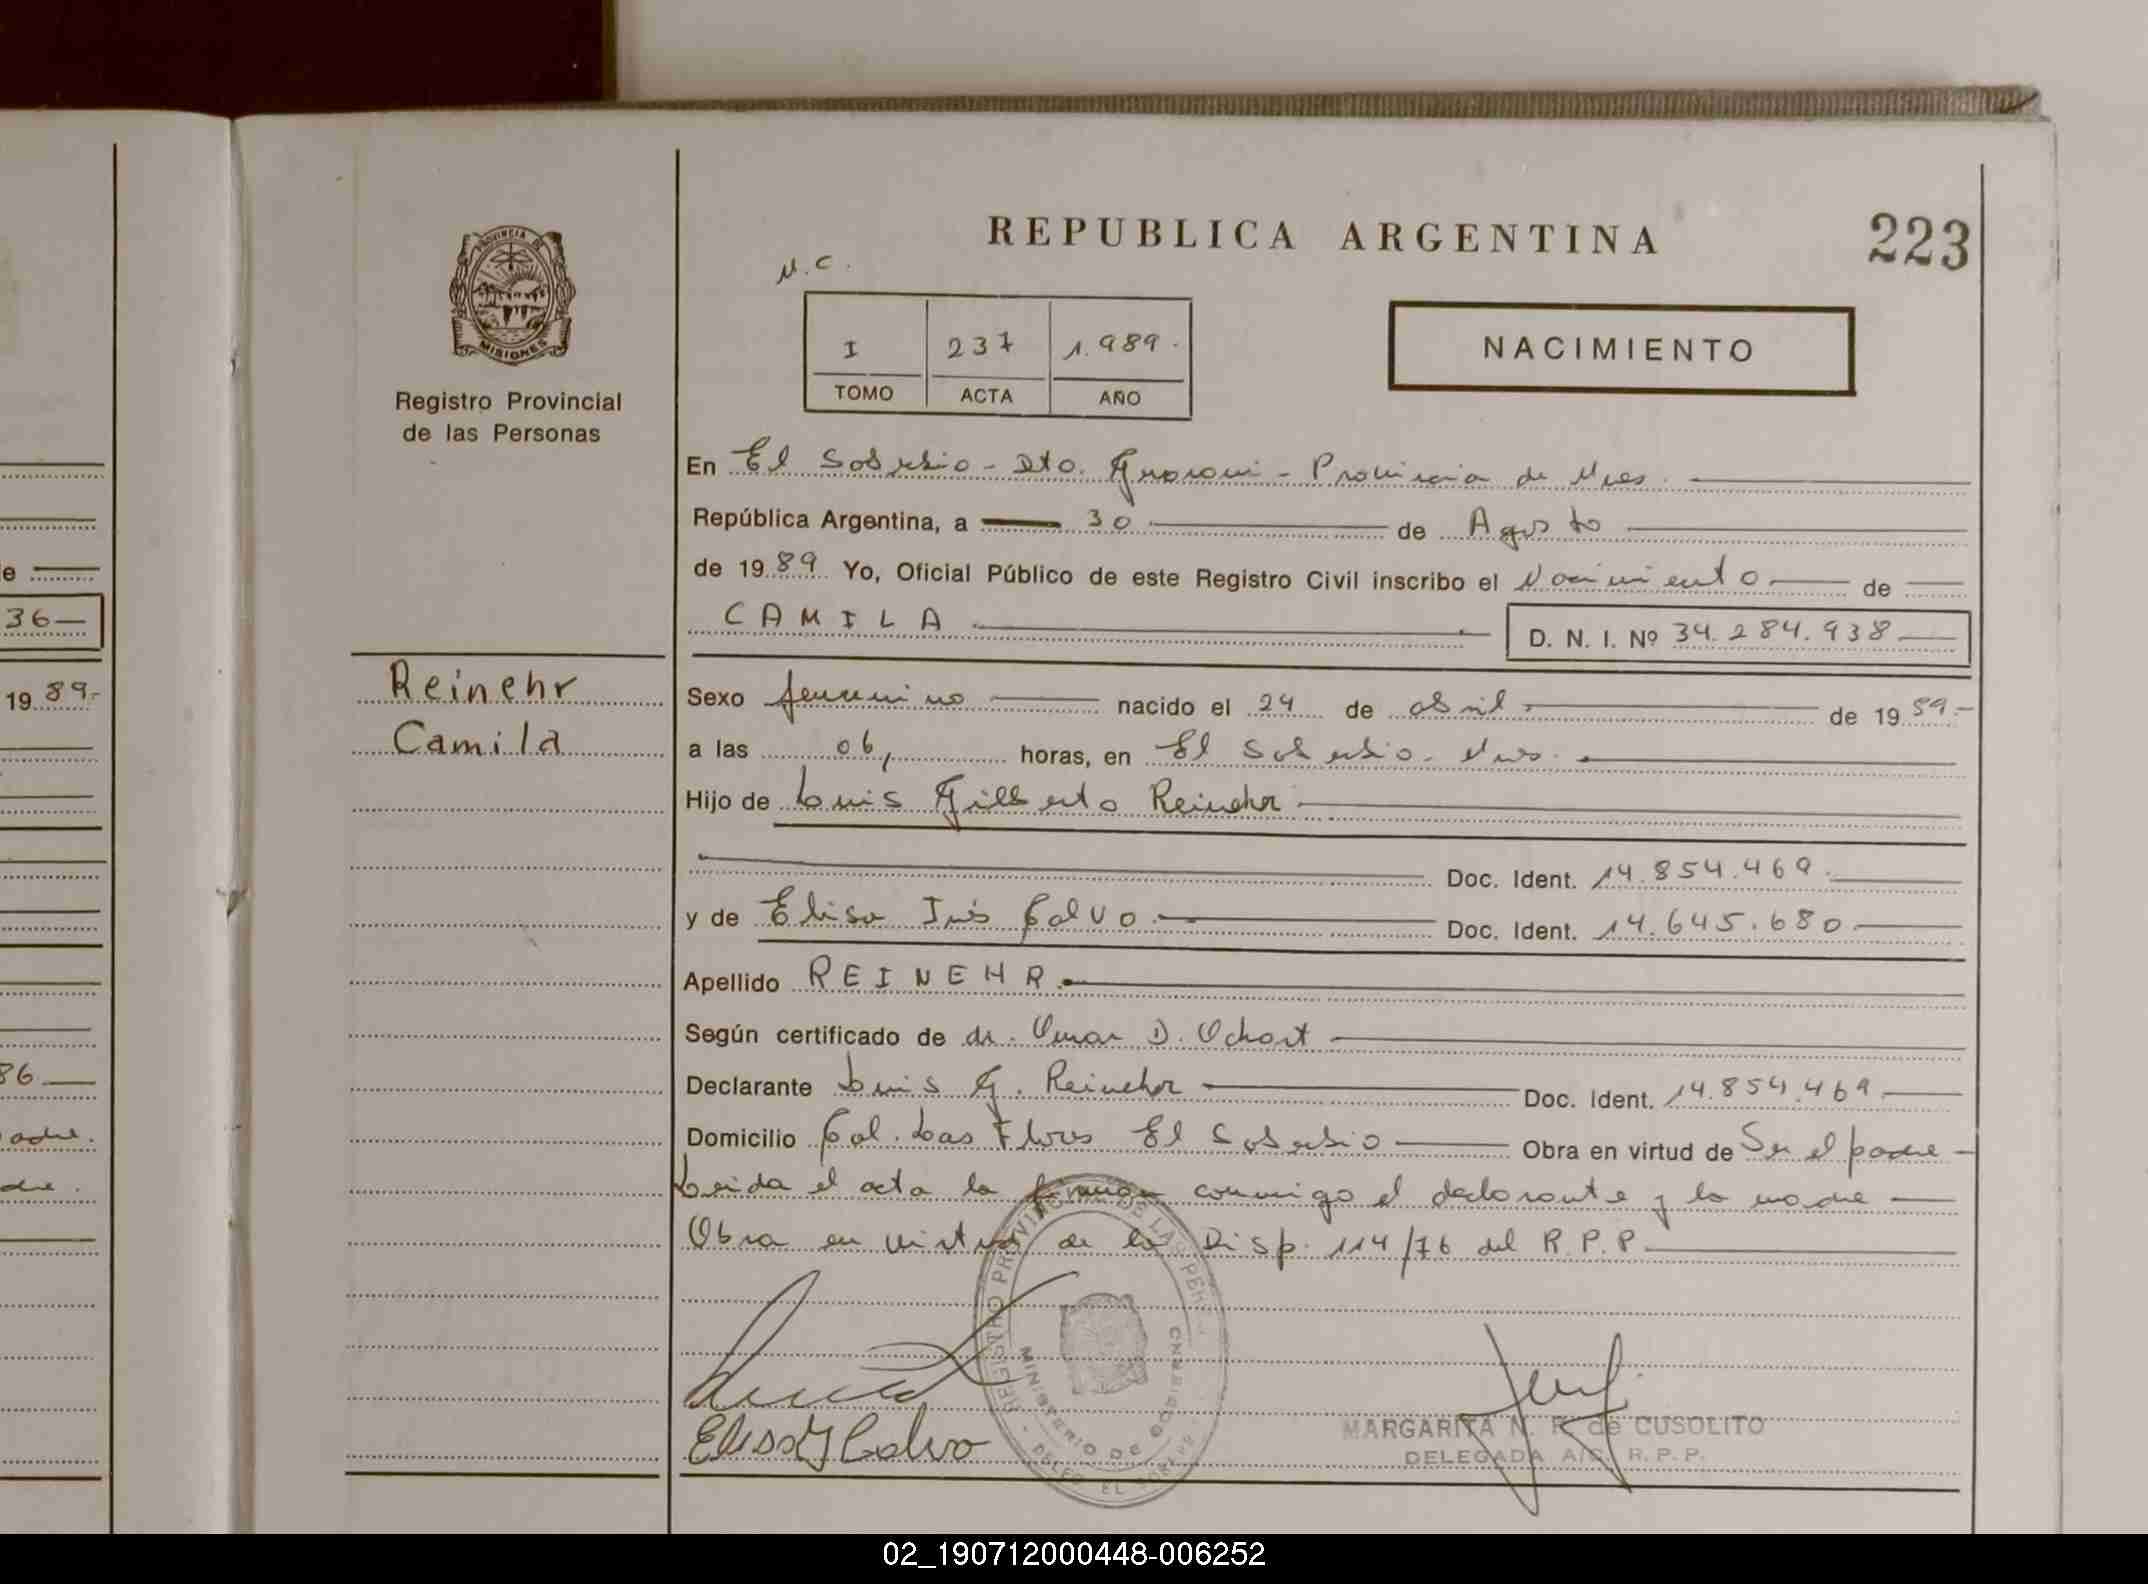 REPUBLICA ARGENTINA
223
PROVINCIA DE
MISIONES
Registro Provincial
de las Personas
N.C.
I 237 1.989.
TOMO ACTA AÑO
NACIMIENTO
En El Soberbio - Dto. Guarani - Provincia de Mnes.
República Argentina, a 30 de Agosto
de 1989 Yo, Oficial Público de este Registro Civil inscribo el Nacimiento de
CAMILA
D. N. I. Nº 34.284.938
Reinehr
Camila
Sexo femenino nacido el 24 de abril de 1989.-
a las 06, horas, en El Soberbio - Mnes.
Hijo de Luis Gilberto Reinehr
Doc. Ident. 14.854.469.
y de Elisa Inés Calvo Doc. Ident. 14.645.680
Apellido REINEHR
Según certificado de dr. Omar D. Ochart
Declarante Luis G. Reinehr Doc. Ident. 14.854.469
Domicilio Col. Las Flores El Soberbio Obra en virtud de Ser el padre -
Leida el acta la firman conmigo el declarante y la madre
Obra en virtud de la Disp. 114/76 del R.P.P.
Elisa I Calvo
REGISTRO PROVINCIAL DE LAS PERS
MINISTERIO DE GOBIERNO
MARGARITA N. R. de CUSOLITO
DELEGADA A/C. R.P.P.
e
36
1989.-
86
adre.
dre.
02_190712000448-006252